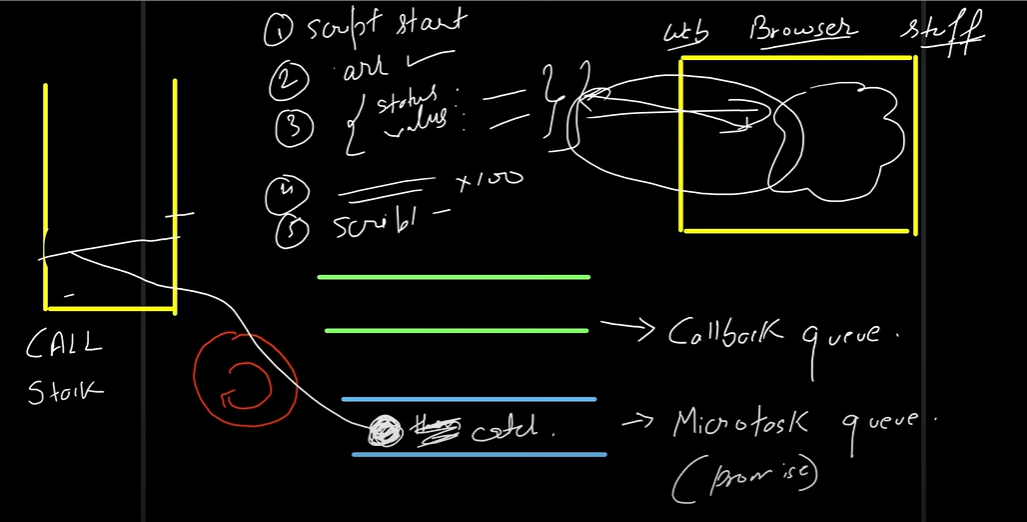 ① script start
② arr
③ { status : }
value :
④ x100
⑤ script
Web Browser stuff
CALL
Stack
→ Callback queue.
catch.
→ Microtask queue.
(promise)